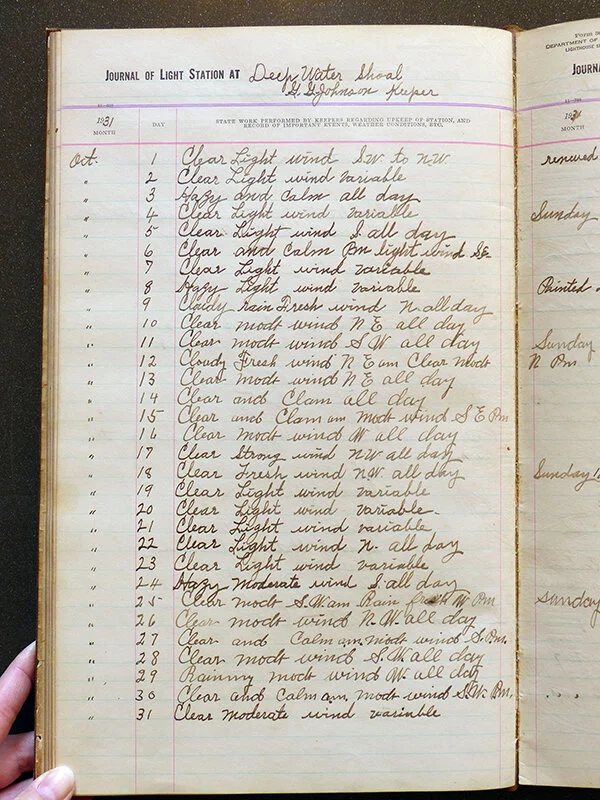 JOURNAL OF LIGHT STATION AT Deep Water Shoal
G. G. Johnson Keeper
1931
MONTH
DAY
STATE WORK PERFORMED BY KEEPERS REGARDING UPKEEP OF STATION, AND
RECORD OF IMPORTANT EVENTS, WEATHER CONDITIONS, ETC.
Oct. 1 Clear Light wind S.W. to N.W
" 2 Clear Light wind variable
" 3 Hazy and Calm all day
" 4 Clear Light wind variable
" 5 Clear Light wind S. all day
" 6 Clear and Calm Pm light wind SE
" 7 Clear Light wind variable
" 8 Hazy Light wind variable
" 9 Cloldy rain Fresh wind N. all day
" 10 Clear modt wind N E all day
" 11 Clear modt wind S W all day
" 12 Cloudy Fresh wind N E am Clear modt N Pm
" 13 Clear modt wind N E all day
" 14 Clear and Clam all day
" 15 Clear and Clam am modt wind S E Pm
" 16 Clear modt wind W all day
" 17 Clear Strong wind NW all day
" 18 Clear Fresh wind N.W. all day
" 19 Clear Light wind variable
" 20 Clear Light wind variable.
" 21 Clear Light wind variable
" 22 Clear Light wind N. all day
" 23 Clear Light wind variable
" 24 Hazy Moderate wind S. all day
" 25 Clear modt S.W. am Rain fresh W Pm
" 26 Clear modt wind N.W. all day
" 27 Clear and Calm am. modt wind S. Pm.
" 28 Clear modt wind S.W. all day
" 29 Rainny modt wind W. all day
" 30 Clear and Calm am. modt wind S.W. Pm.
" 31 Clear Moderate wind variable
Form
DEPARTMENT OF
LIGHTHOUSE
JOURNA
MONTH
renewed
Sunday
Painted
Sunday
Sunday
Sunday